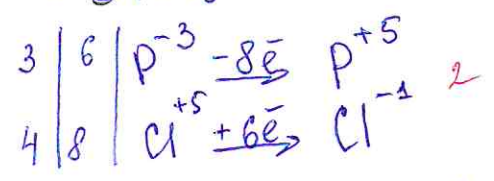 3 | 6 | P⁻³ −8ē → P⁺⁵ 2
4 | 8 | Cl⁺⁵ +6ē → Cl⁻¹